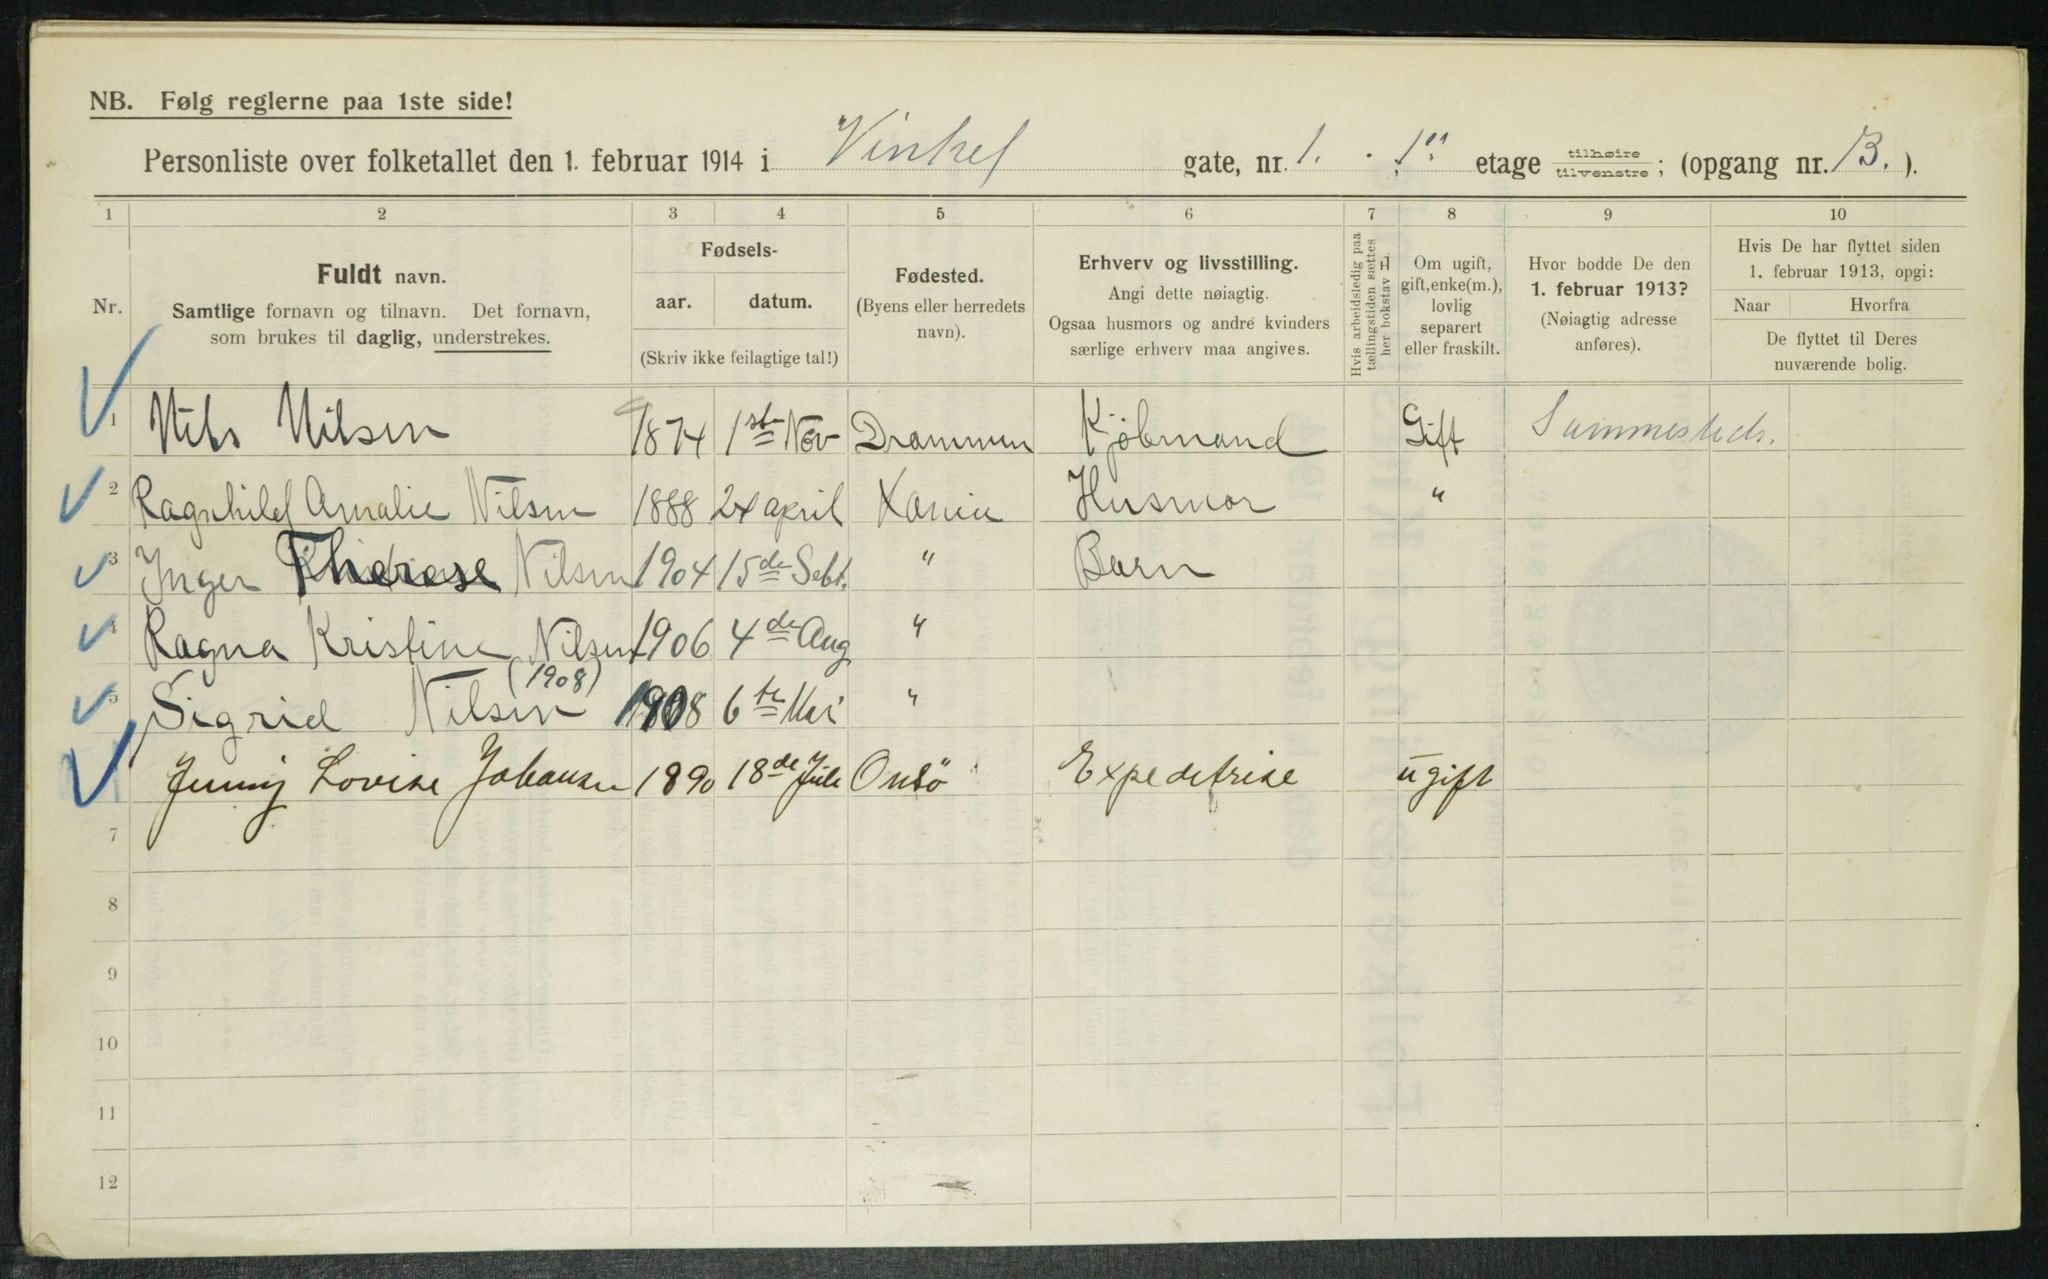 NB. Følg reglerne paa 1ste side!
Personliste over folketallet den 1. februar 1914 i Vinkel gate, nr. 1. 1ste etage tilhøire tilvenstre; (opgang nr. B.).
1 2 3 4 5 6 7 8 9 10
Nr.
Fuldt navn.
Samtlige fornavn og tilnavn. Det fornavn,
som brukes til daglig, understrekes.
Fødsels-
aar. datum.
(Skriv ikke feilagtige tal!)
Fødested.
(Byens eller herredets
navn).
Erhverv og livsstilling.
Angi dette nøiagtig.
Ogsaa husmors og andre kvinders
særlige erhverv maa angives.
Hvis arbeidsledig paa
tællingstiden sættes
her bokstav H
Om ugift,
gift, enke(m.),
lovlig
separert
eller fraskilt.
Hvor bodde De den
1. februar 1913?
(Nøiagtig adresse
anføres).
Hvis De har flyttet siden
1. februar 1913, opgi:
Naar Hvorfra
De flyttet til Deres
nuværende bolig.
1 Nils Nilsen 1874 1ste Nov Drammen Kjøbmand Gift Sammesteds.
2 Ragnhild Amalie Nilsen 1888 24 april Xania Husmor "
3 Inger Therese Nilsen 1904 15de Sebt. " Barn
4 Ragna Kristine Nilsen 1906 4de Aug "
(1908)
5 Sigrid Nilsen 1908 6te Mai "
Jenny Lovise Johansen 1890 18de Juli Onsö Expeditrise ugift
7
8
9
10
11
12